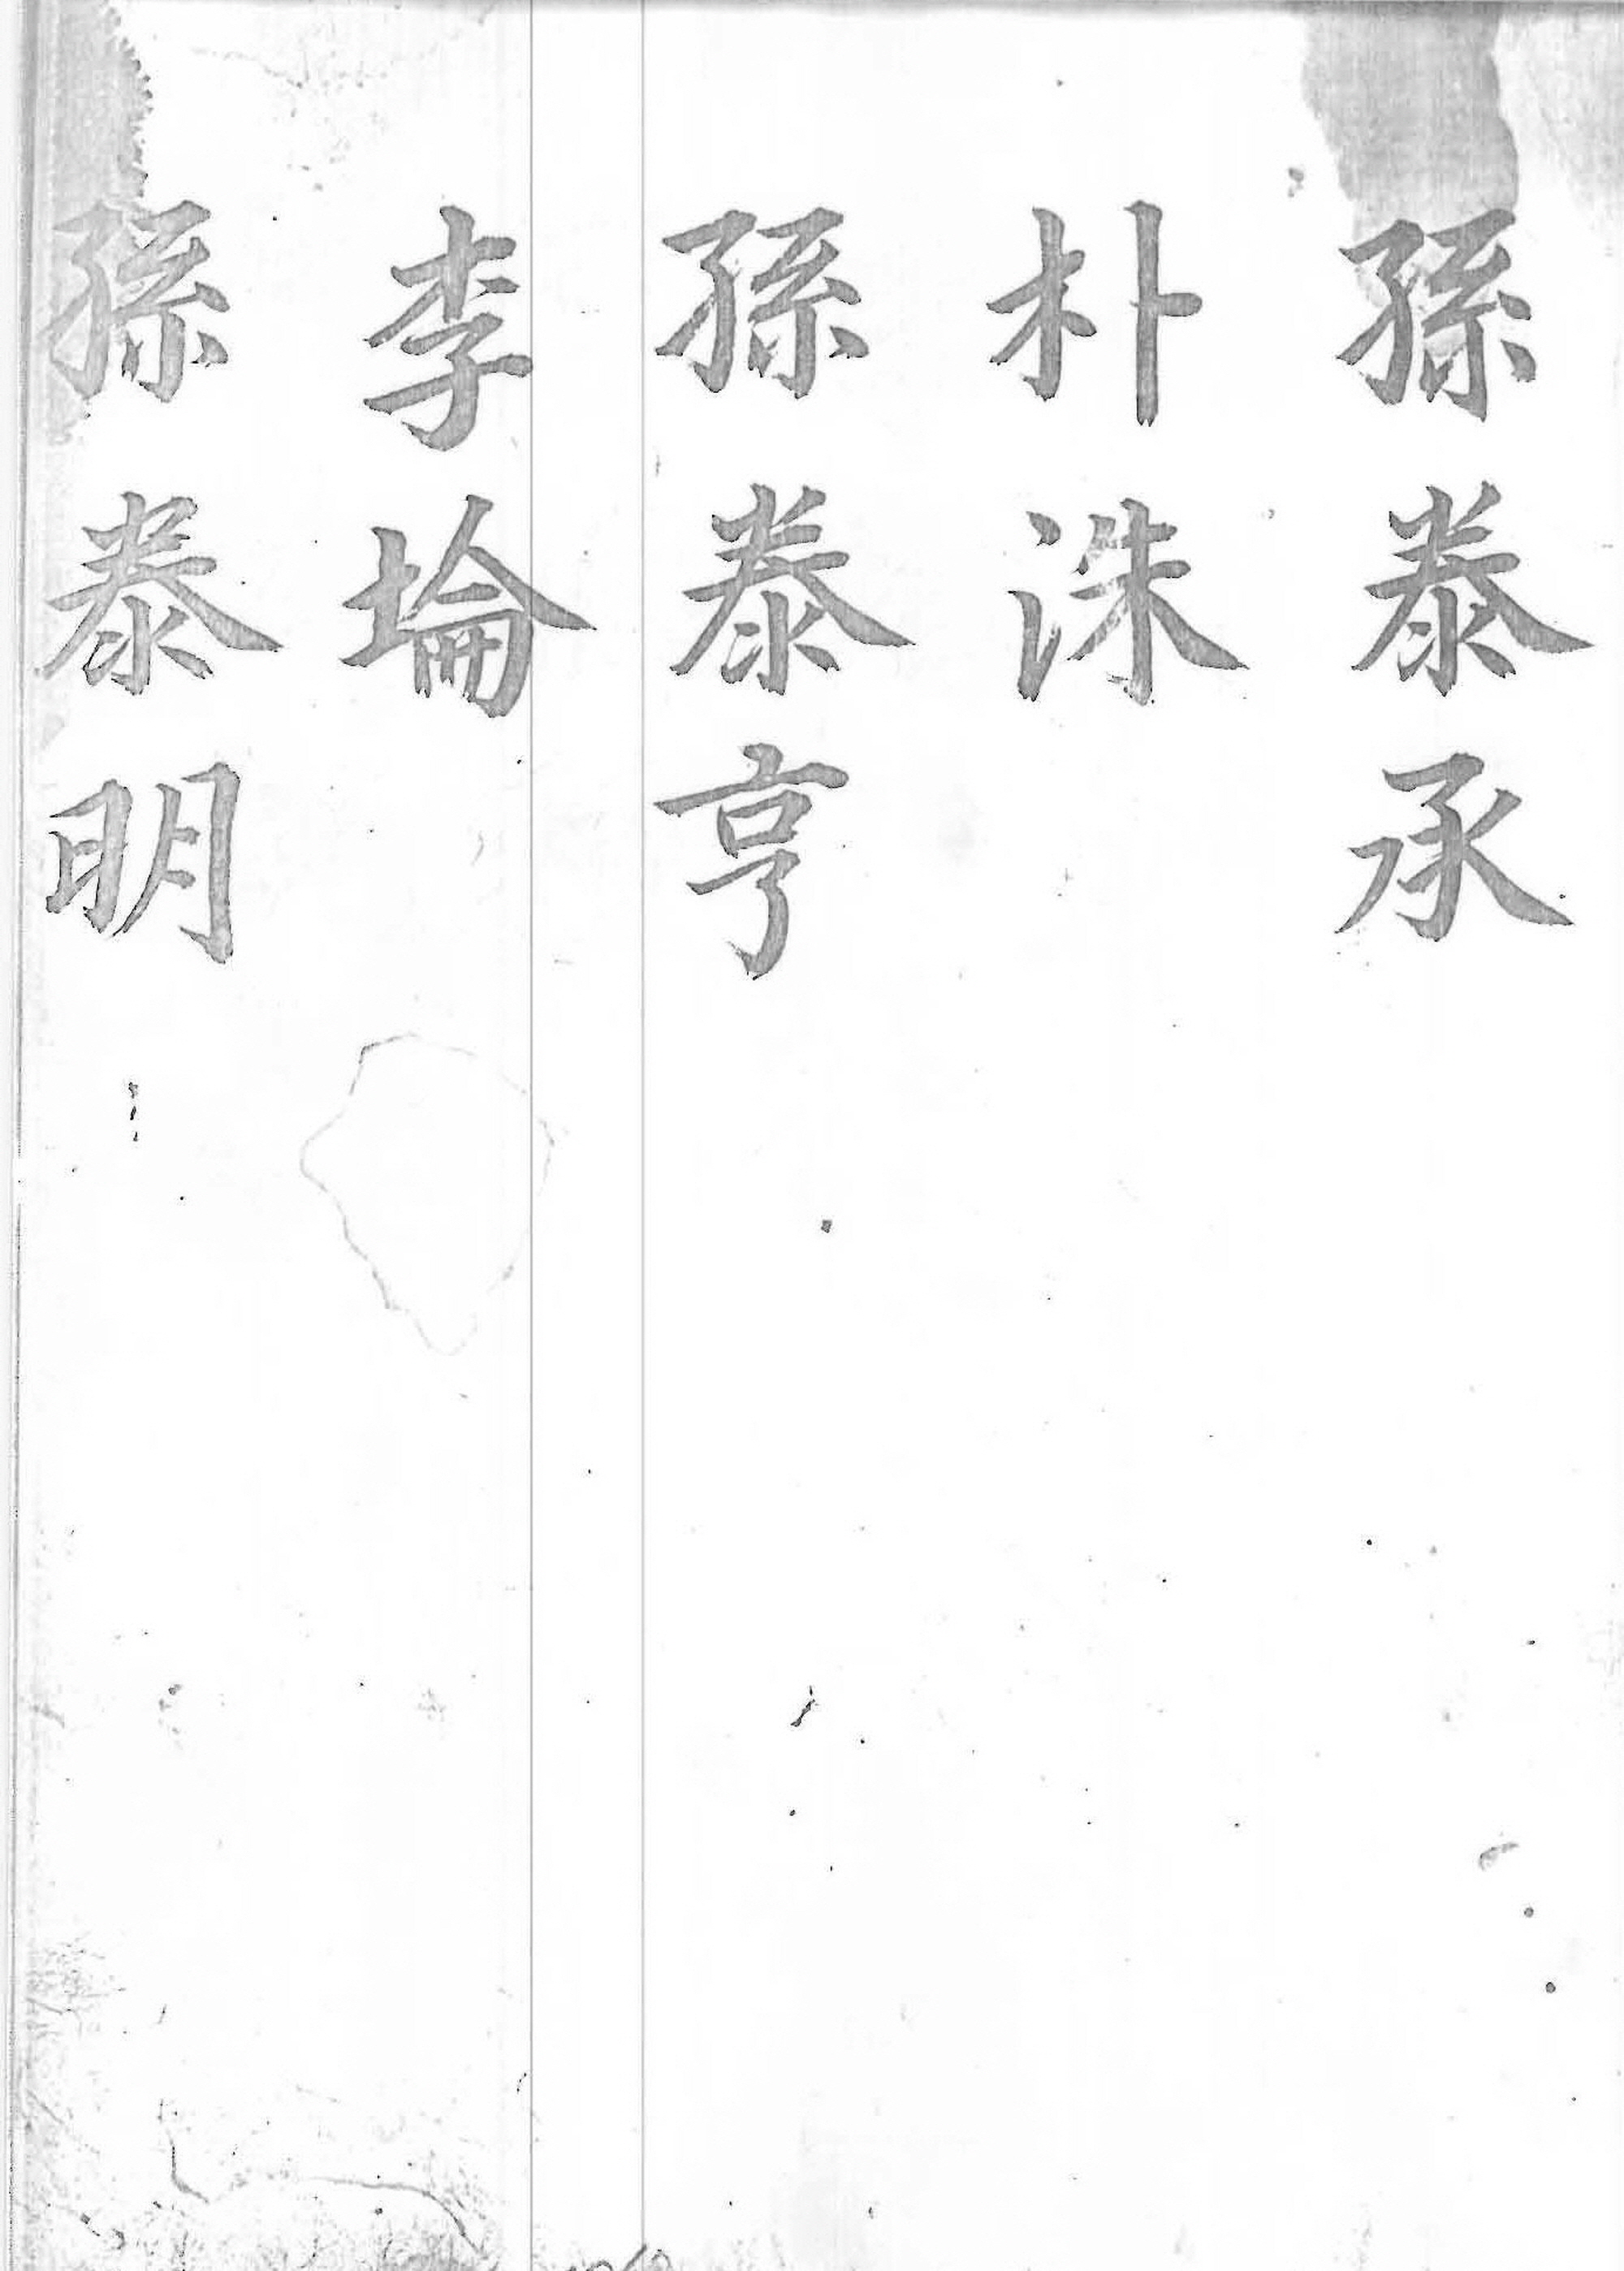 孫泰承
朴洙
孫泰亨
李埨
孫泰明